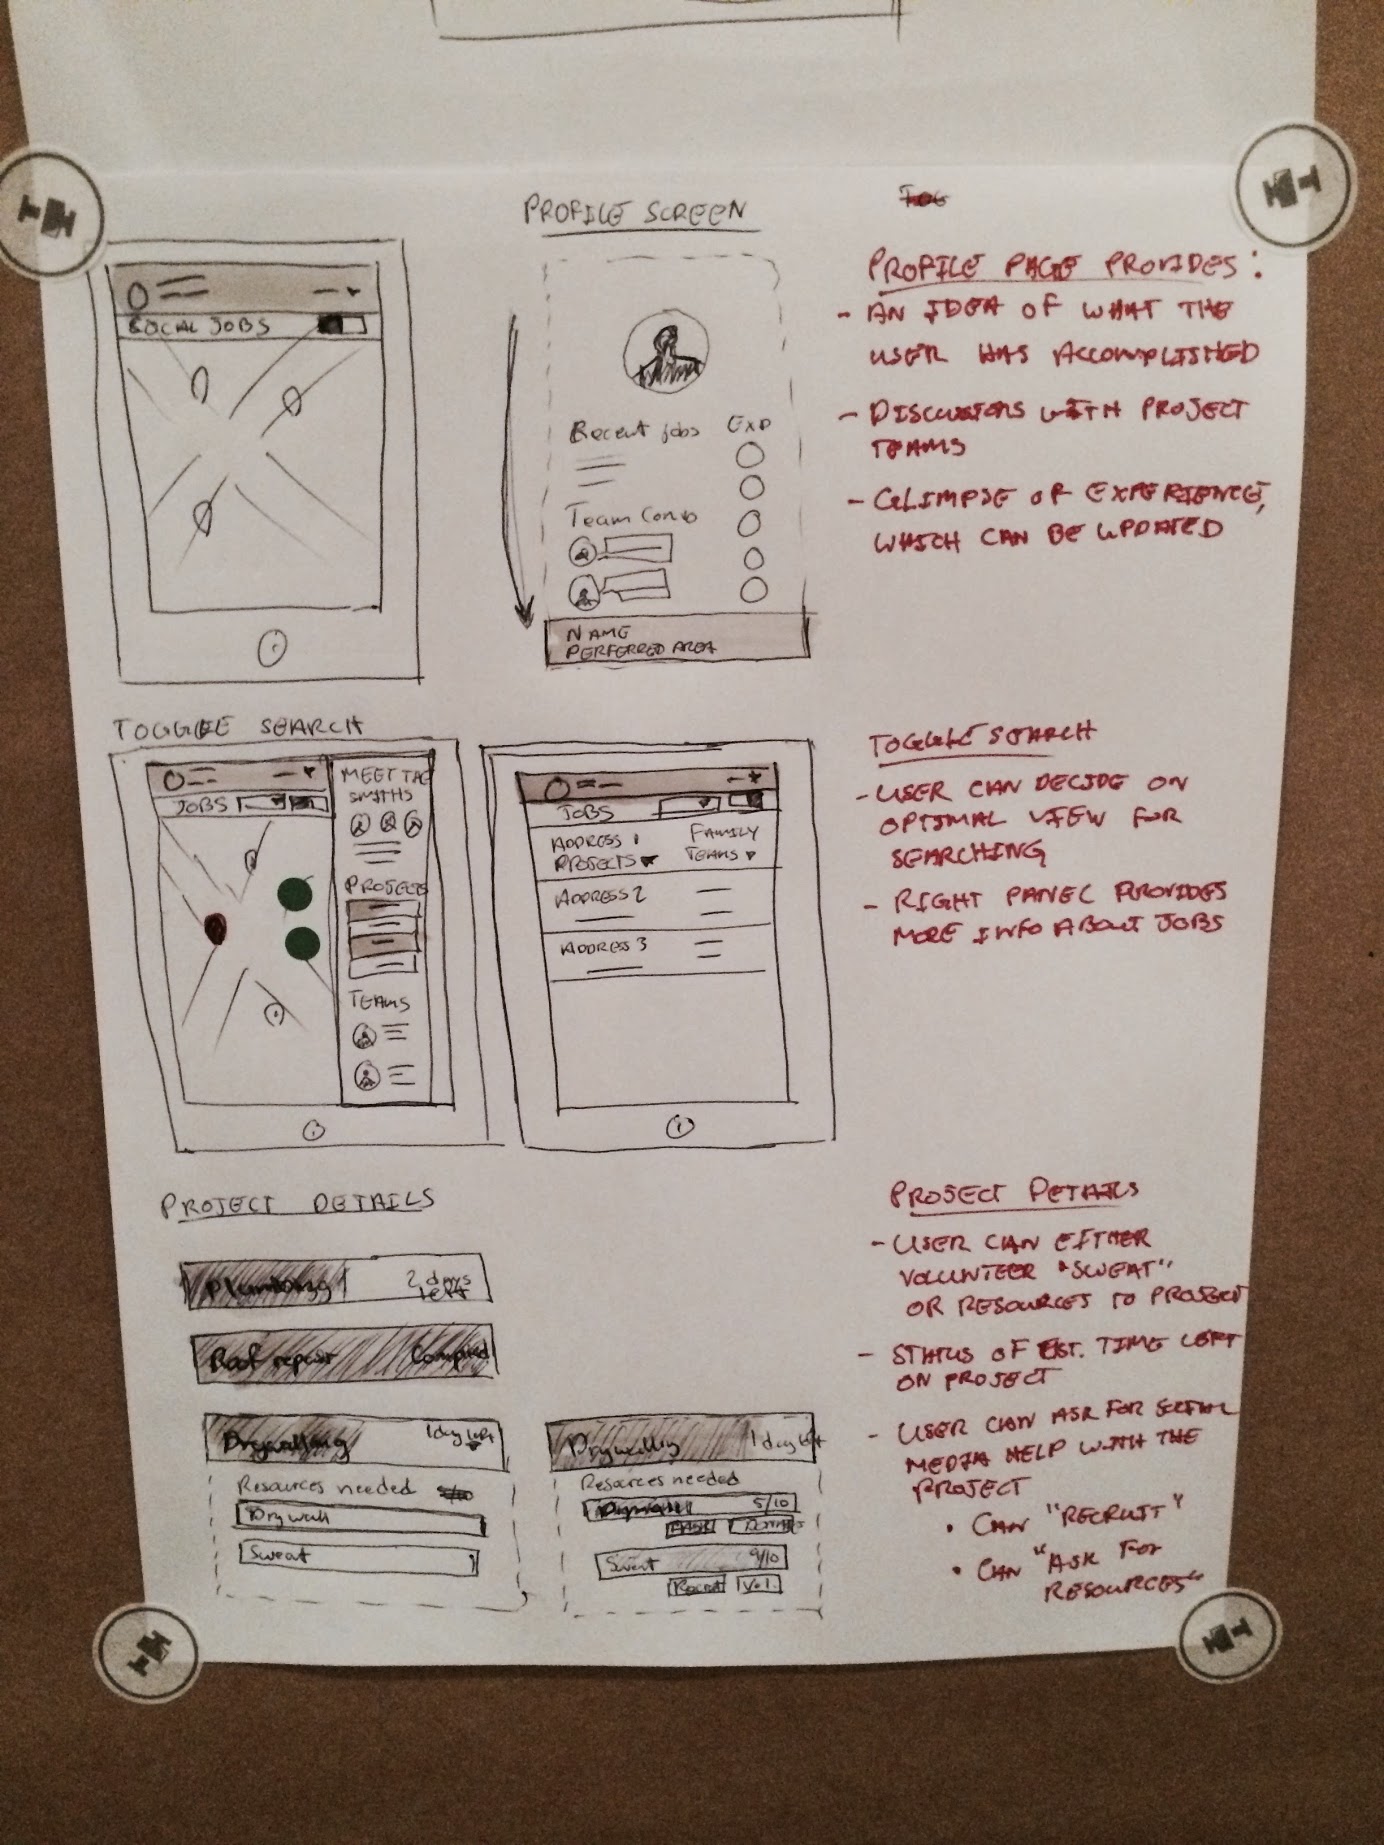 PROFILE SCREEN
LOCAL JOBS
Recent jobs Exp
Team Convo
NAME
PERFERRED AREA
PROFILE PAGE PROVIDES:
- AN IDEA OF WHAT THE
USER HAS ACCOMPLISHED
- DISCUSSIONS WITH PROJECT
TEAMS
- GLIMPSE OF EXPERIENCE,
WHICH CAN BE UPDATED
TOGGLE SEARCH
JOBS
MEET THE
SMITHS
PROJECTS
TEAMS
JOBS
ADDRESS 1 FAMILY
PROJECTS TEAMS
ADDRESS 2
ADDRESS 3
TOGGLE SEARCH
- USER CAN DECIDE ON
OPTIMAL VIEW FOR
SEARCHING
- RIGHT PANEL PROVIDES
MORE INFO ABOUT JOBS
PROJECT DETAILS
Plumbing 2 days
left
Roof repair
Drywalling 1 day left
Resources needed
Drywall
Sweat
Drywalling 1 day left
Resources needed
5/10
Sweat 9/10
Recruit Vol.
PROJECT DETAILS
- USER CAN EITHER
VOLUNTEER "SWEAT"
OR RESOURCES TO PROJECT
- STATUS OF EST. TIME LEFT
ON PROJECT
- USER CAN ASK FOR SOCIAL
MEDIA HELP WITH THE
PROJECT
• CAN "RECRUIT"
• CAN "ASK FOR
RESOURCES"